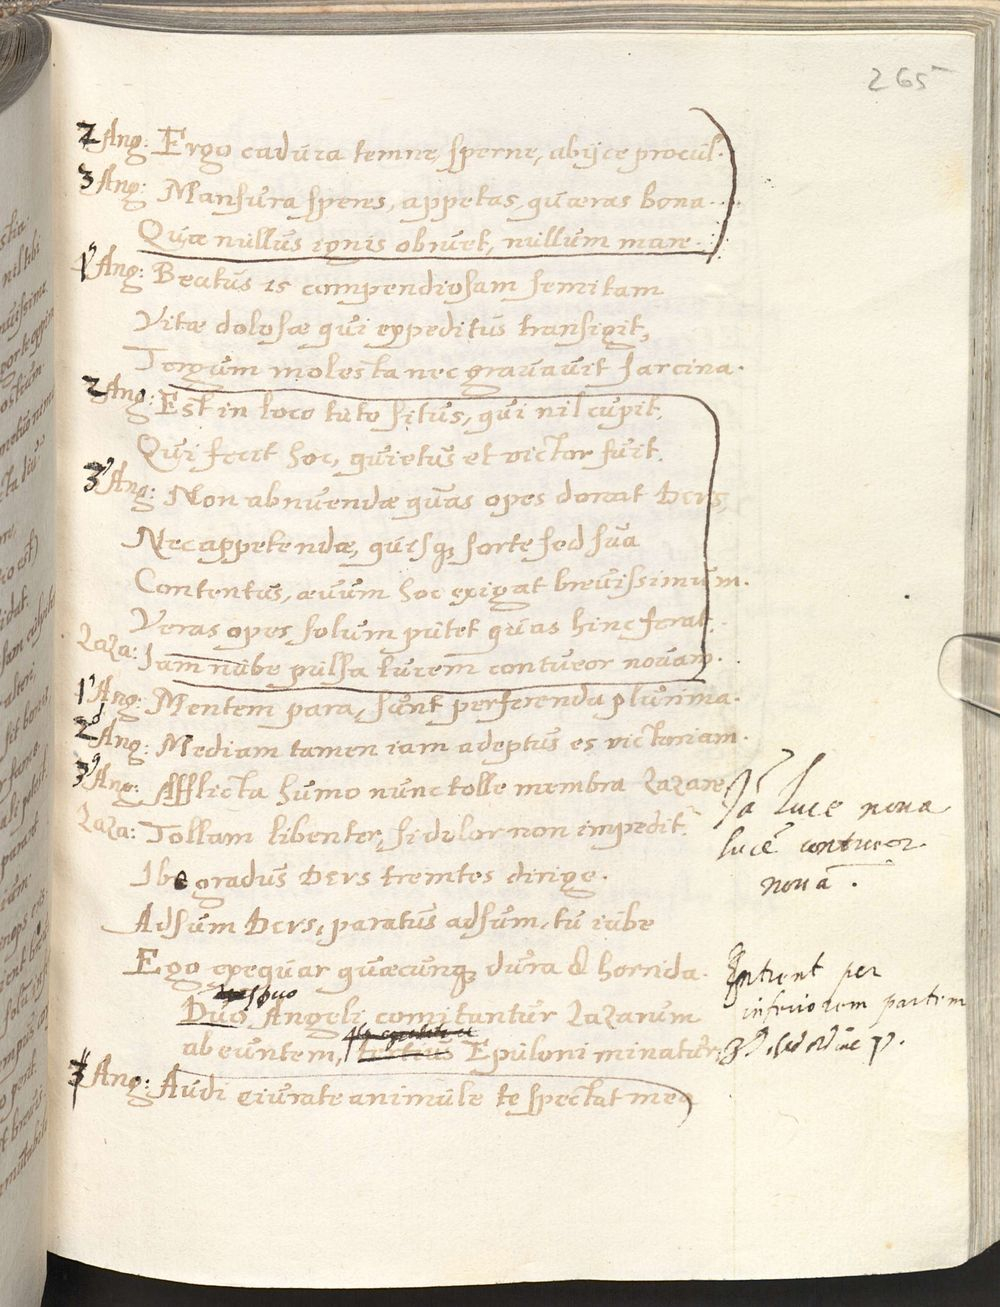 265
2 Ang: Ergo cadura temne, sperne, abijce procul.
3 Ang: Mansura speres, appetas, quæras bona.
Quæ nullus ignis obruet, nullum mare.
1 Ang: Beatus is compendiosam semitam
Vitæ dolosæ qui expeditus transigit,
Tergum molesta nec grauauit sarcina.
2 Ang: Est in loco tuto situs, qui nil cupit,
Qui fecit hoc, quietus et victor fuit.
3 Ang: Non abnuendæ quas opes donat Deus,
Nec appetendæ, quisq; sorte sed sua
Contentus, æuum hoc exigat breuissimum.
Veras opes solum putet quas hinc ferat.
Laza: Iam nube pulsa lucem contueor nouam.
1 Ang: Mentem para, sunt perferenda plurima.
2 Ang: Mediam tamen iam adeptus es victoriam.
3 Ang: Afflicta humo nunc tolle membra Lazare
Laza: Tollam libenter, si dolor non impedit.
Ibo gradus Deus trementes dirige.
Iã luce noua
lucē contueor
nouã.
Adsum Deus, paratus adsum, tu iube
Ego exequar quæcunq; dura & horrida.
Intrent per
inferiorem partem
duo
Duo Angeli comitantur Lazarum
abeuntem, Epuloni minatur
3 Ang: Audi ciurate animule te spectat mea